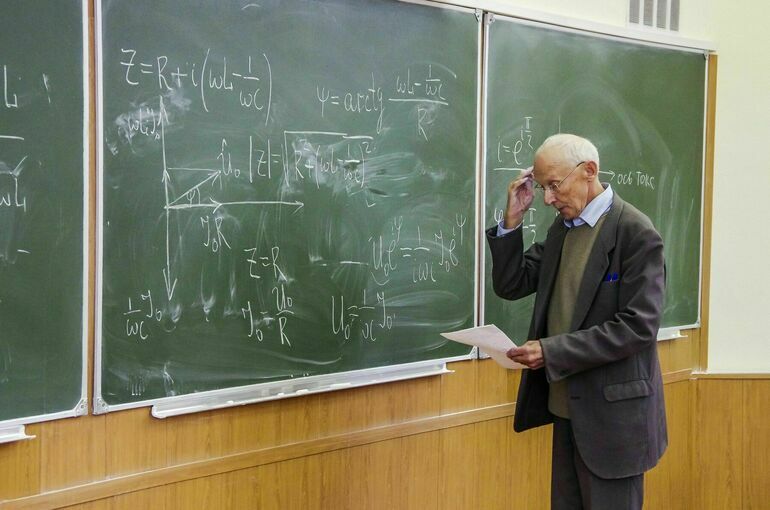 Z=R+i(ωL-1/ωC)
ψ=arctg (ωL-1/ωC)/R
ωL J₀
û₀ |Z|=√(R+(ωL-1/ωC)²
φ
J₀R
Z=R
U₀e^iφ=1/iωC J₀e^iψ
1/ωC J₀
J₀=U₀/R
U₀=1/ωC J₀
i=e^iπ/2
ось токс
L